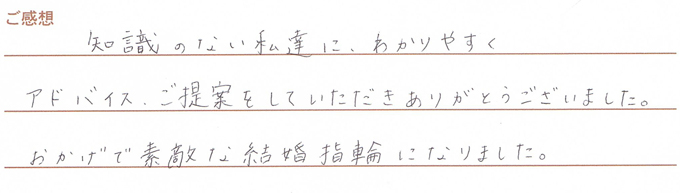 ご感想
知識のない私達に、わかりやすく
アドバイス、ご提案をしていただきありがとうございました。
おかげで素敵な結婚指輪になりました。